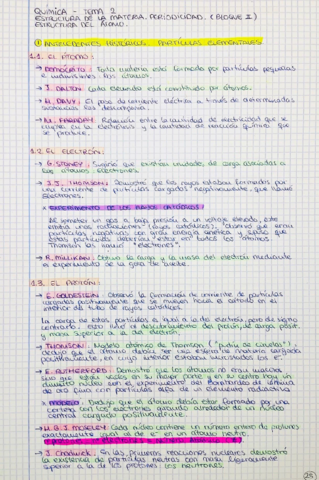 QUÍMICA - TEMA 2
ESTRUCTURA DE LA MATERIA. PERIODICIDAD. (BLOQUE I)
ESTRUCTURA DEL ÁTOMO.
① ANTECEDENTES HISTÓRICOS. PARTÍCULAS ELEMENTALES
1.1. EL ÁTOMO:
→ DEMÓCRITO: Toda materia está formada por partículas pequeñas
e indivisibles: los átomos.
→ J. DALTON: Cada elemento está constituido por átomos.
→ H. DAVY: El paso de corriente eléctrica a través de determinadas
sustancias las descompone.
→ M. FARADAY: Relación entre la cantidad de electricidad que se
en la electrolisis y la cantidad de reacción química que
se produce.
1.2. EL ELECTRÓN:
→ G. STONEY: Sugirió que existían unidades de carga asociadas a
los átomos, electrones.
→ J.J. THOMSON: Demostró que los rayos estaban formados por
una corriente de partículas cargadas negativamente, que llamó
electrones.
EXPERIMENTO DE LOS RAYOS CATÓDICOS
Al someter un gas a baja presión a un voltaje elevado, este
emitía unas radiaciones (rayos catódicos), observó que eran
partículas negativas con gran energía cinética y supuso que
estas partículas deberían estar en todos los átomos.
Thomson las llamó "electrones".
→ R. MILLIKAN: Obtuvo la carga y la masa del electrón mediante
el experimento de la gota de aceite.
1.3. EL PROTÓN:
→ E. GOLDSTEIN: Observó la formación de corriente de partículas
cargadas positivamente que se mueven hacia el cátodo en el
interior de tubo de rayos catódicos.
La carga de estas partículas es igual a la de electrón, pero de signo
contrario, esto dio al descubrimiento del protón, de carga posit.
y masa superior a la del electrón.
→ THOMSON: Modelo atómico de Thomson ("pudin de ciruelas").
dedujo que el átomo debía ser una esfera de materia cargada
positivamente, en cuyo interior estaban incrustados los e⁻.
→ E. RUTHERFORD: Demostró que los átomos no eran macizos
sino que están vacíos en su mayor parte y en su centro hay un
diminuto núcleo con el experimento del bombardeo de láminas
de oro finas con partículas alfa de un elemento radiactivo.
MODELO: Dedujo que el átomo debía estar formado por una
corteza con los electrones girando alrededor de un núcleo
central cargado positivamente.
→ H.G.J. MOSELEY: Cada núcleo contiene un número entero de protones
exactamente igual al de e⁻ en un átomo neutro.
→ J. Chadwick: En las primeras reacciones nucleares demostró
la existencia de partículas neutras con masa ligeramente
superior a la de los protones: los neutrones.